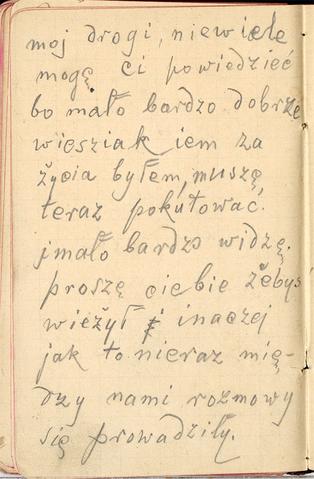 moj drogi, niewiele
mogę ci powiedzieć
bo mało bardzo dobrze
wiesziak iem za
życia byłem, muszę
teraz pokutować.
jmało bardzo widzę.
proszę ciebie żebyś
wieżył i inaczej
jak to nieraz mię-
dzy nami rozmowy
się prowadziły.